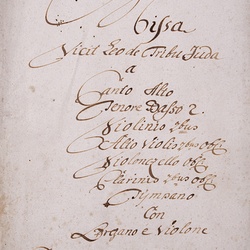 Missa
Vicit Leo de Tribu Juda
a
Canto Alto
Tenore Basso 2.
Violinis 2bus
Alto Viola obl:
Violonzello obl:
Clarinis 2bus obl:
Tympano
Con
Organo e Violone